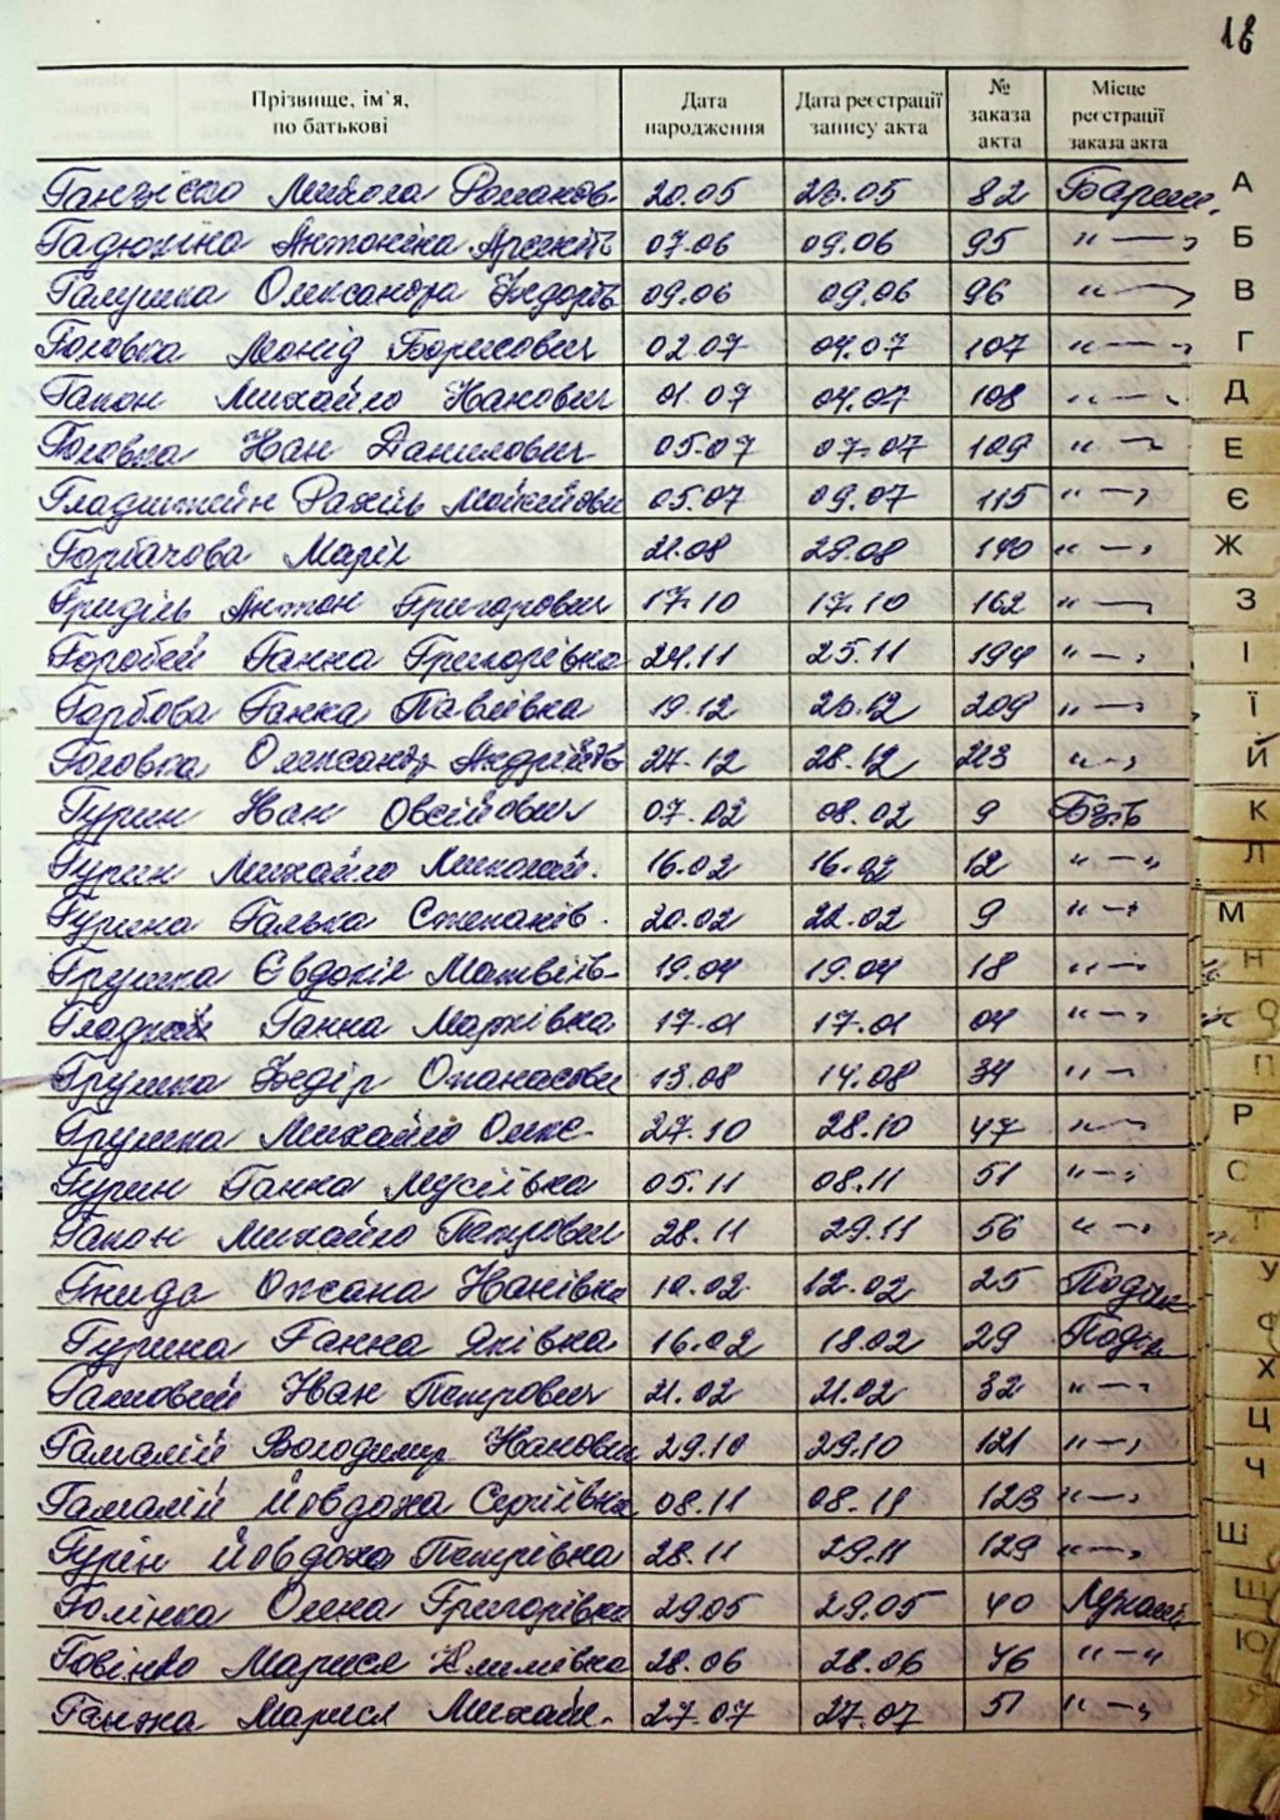 18
Прізвище, ім'я, по батькові Дата народження Дата реєстрації запису акта № заказа акта Місце реєстрації заказа акта
Микола Романов. 20.05 20.05 82 Бариш.
Гадюкіна Антоніна Арсентів 07.06 09.06 95 " — "
Галушка Олександра Федорів 09.06 09.06 96 " — "
Головка Леонід Борисович 02.07 04.07 107 " — "
Гапон Михайло Іванович 01.07 04.07 108 " — "
Головка Іван Данилович 05.07 07.07 109 " — "
Гладштейн Рахіль 05.07 09.07 115 " — "
Горбачова Марія 21.08 29.08 140 " — "
Гриділь Антон Григорович 17.10 17.10 162 " — "
Горобей Ганна Григорівна 24.11 25.11 194 " — "
Горбова Ганна Павлівна 19.12 20.12 209 " — "
Головка Олександр 27.12 28.12 213 " — "
Гурин Іван Овсійович 07.02 08.02 9 Бзів
Гурин Михайло Миколай. 16.02 16.02 12 " — "
Гурина Галька Степанів. 20.02 22.02 9 " — "
Грушка Євдокія Матвіїв. 19.04 19.04 18 " — "
Ганна Марківна 17.01 17.01 04 " — "
Грушка Федір Опанасови 13.08 14.08 34 " — "
Грушка Михайло Олекс. 27.10 28.10 47 " — "
Гурин Ганна Мусіївна 05.11 08.11 51 " — "
Гапон Михайло Петрович 28.11 29.11 56 " — "
Гнида Оксана Іванівна 10.02 12.02 25
Гурина Ганна Яківна 16.02 18.02 29
Іван Петрович 21.02 21.02 32 " — "
Гамалій Володимир Іванович 29.10 29.10 121 " — "
Гамалій Йовдоха Сергіївна 08.11 08.11 123 " — "
Гурін Йовдоха Петрівна 28.11 29.11 129 " — "
Голінка Олена Григорівна 29.05 29.05 40
Марися Климівна 28.06 28.06 46 " — "
Ганжа Марися Михайл. 27.07 27.07 51 " — "
А
Б
В
Г
Д
Е
Є
Ж
З
І
Ї
Й
К
Л
М
Н
О
П
Р
С
Т
У
Ф
Х
Ц
Ч
Ш
Щ
Ю